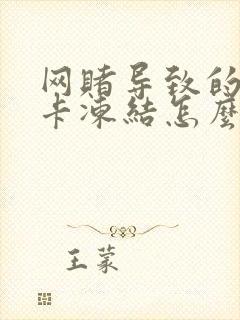 网赌导致的
卡冻结怎麼
王蒙